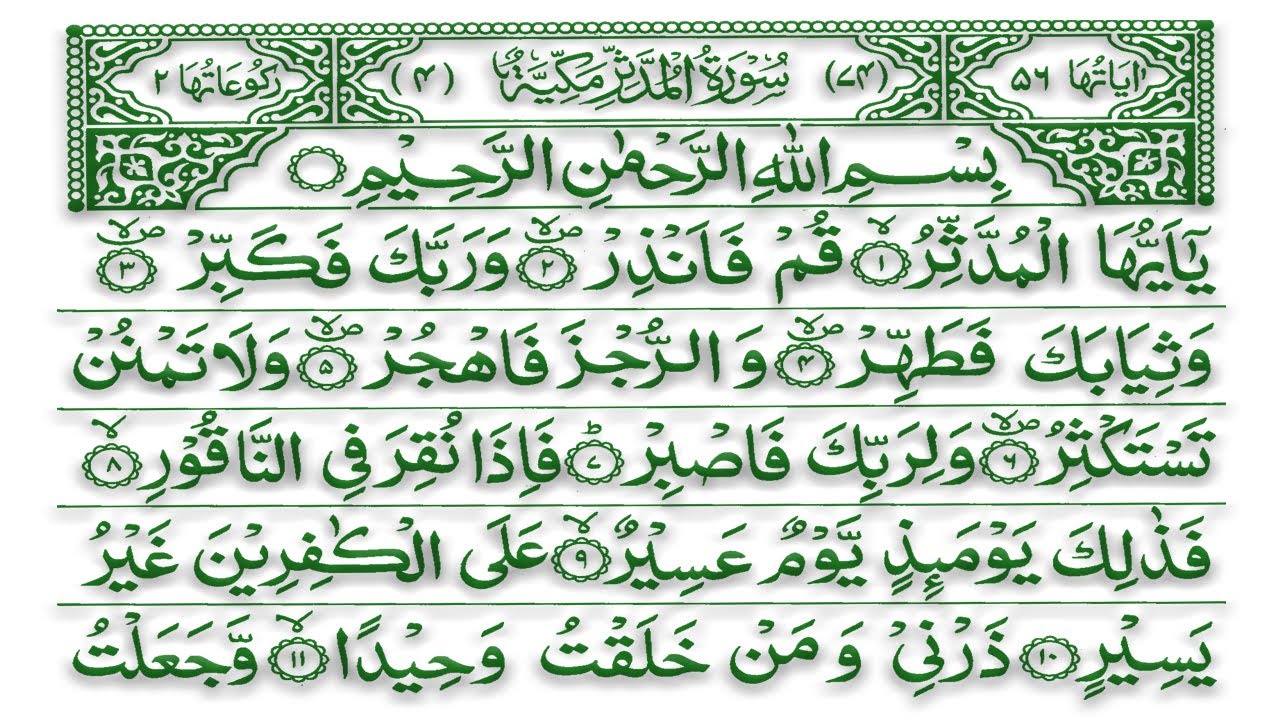 اٰیَاتُهَا ۵۶ (۷۴) سُوْرَةُ الْمُدَّثِّرِ مَكِّیَّةٌ (۴) رُكُوْعَاتُهَا ۲
بِسْمِ اللّٰهِ الرَّحْمٰنِ الرَّحِیْمِ
یٰۤاَیُّهَا الْمُدَّثِّرُ ۙ﴿۱﴾ قُمْ فَاَنْذِرْ ۪ۙ﴿۲﴾ وَ رَبَّكَ فَكَبِّرْ ۪ۙ﴿۳﴾
وَ ثِیَابَكَ فَطَهِّرْ ۪ۙ﴿۴﴾ وَ الرُّجْزَ فَاهْجُرْ ۪ۙ﴿۵﴾ وَ لَا تَمْنُنْ
تَسْتَكْثِرُ ۪ۙ﴿۶﴾ وَ لِرَبِّكَ فَاصْبِرْ ؕ﴿۷﴾ فَاِذَا نُقِرَ فِی النَّاقُوْرِ ۙ﴿۸﴾
فَذٰلِكَ یَوْمَىِٕذٍ یَّوْمٌ عَسِیْرٌ ۙ﴿۹﴾ عَلَی الْكٰفِرِیْنَ غَیْرُ
یَسِیْرٍ ﴿۱۰﴾ ذَرْنِیْ وَ مَنْ خَلَقْتُ وَحِیْدًا ۙ﴿۱۱﴾ وَّ جَعَلْتُ